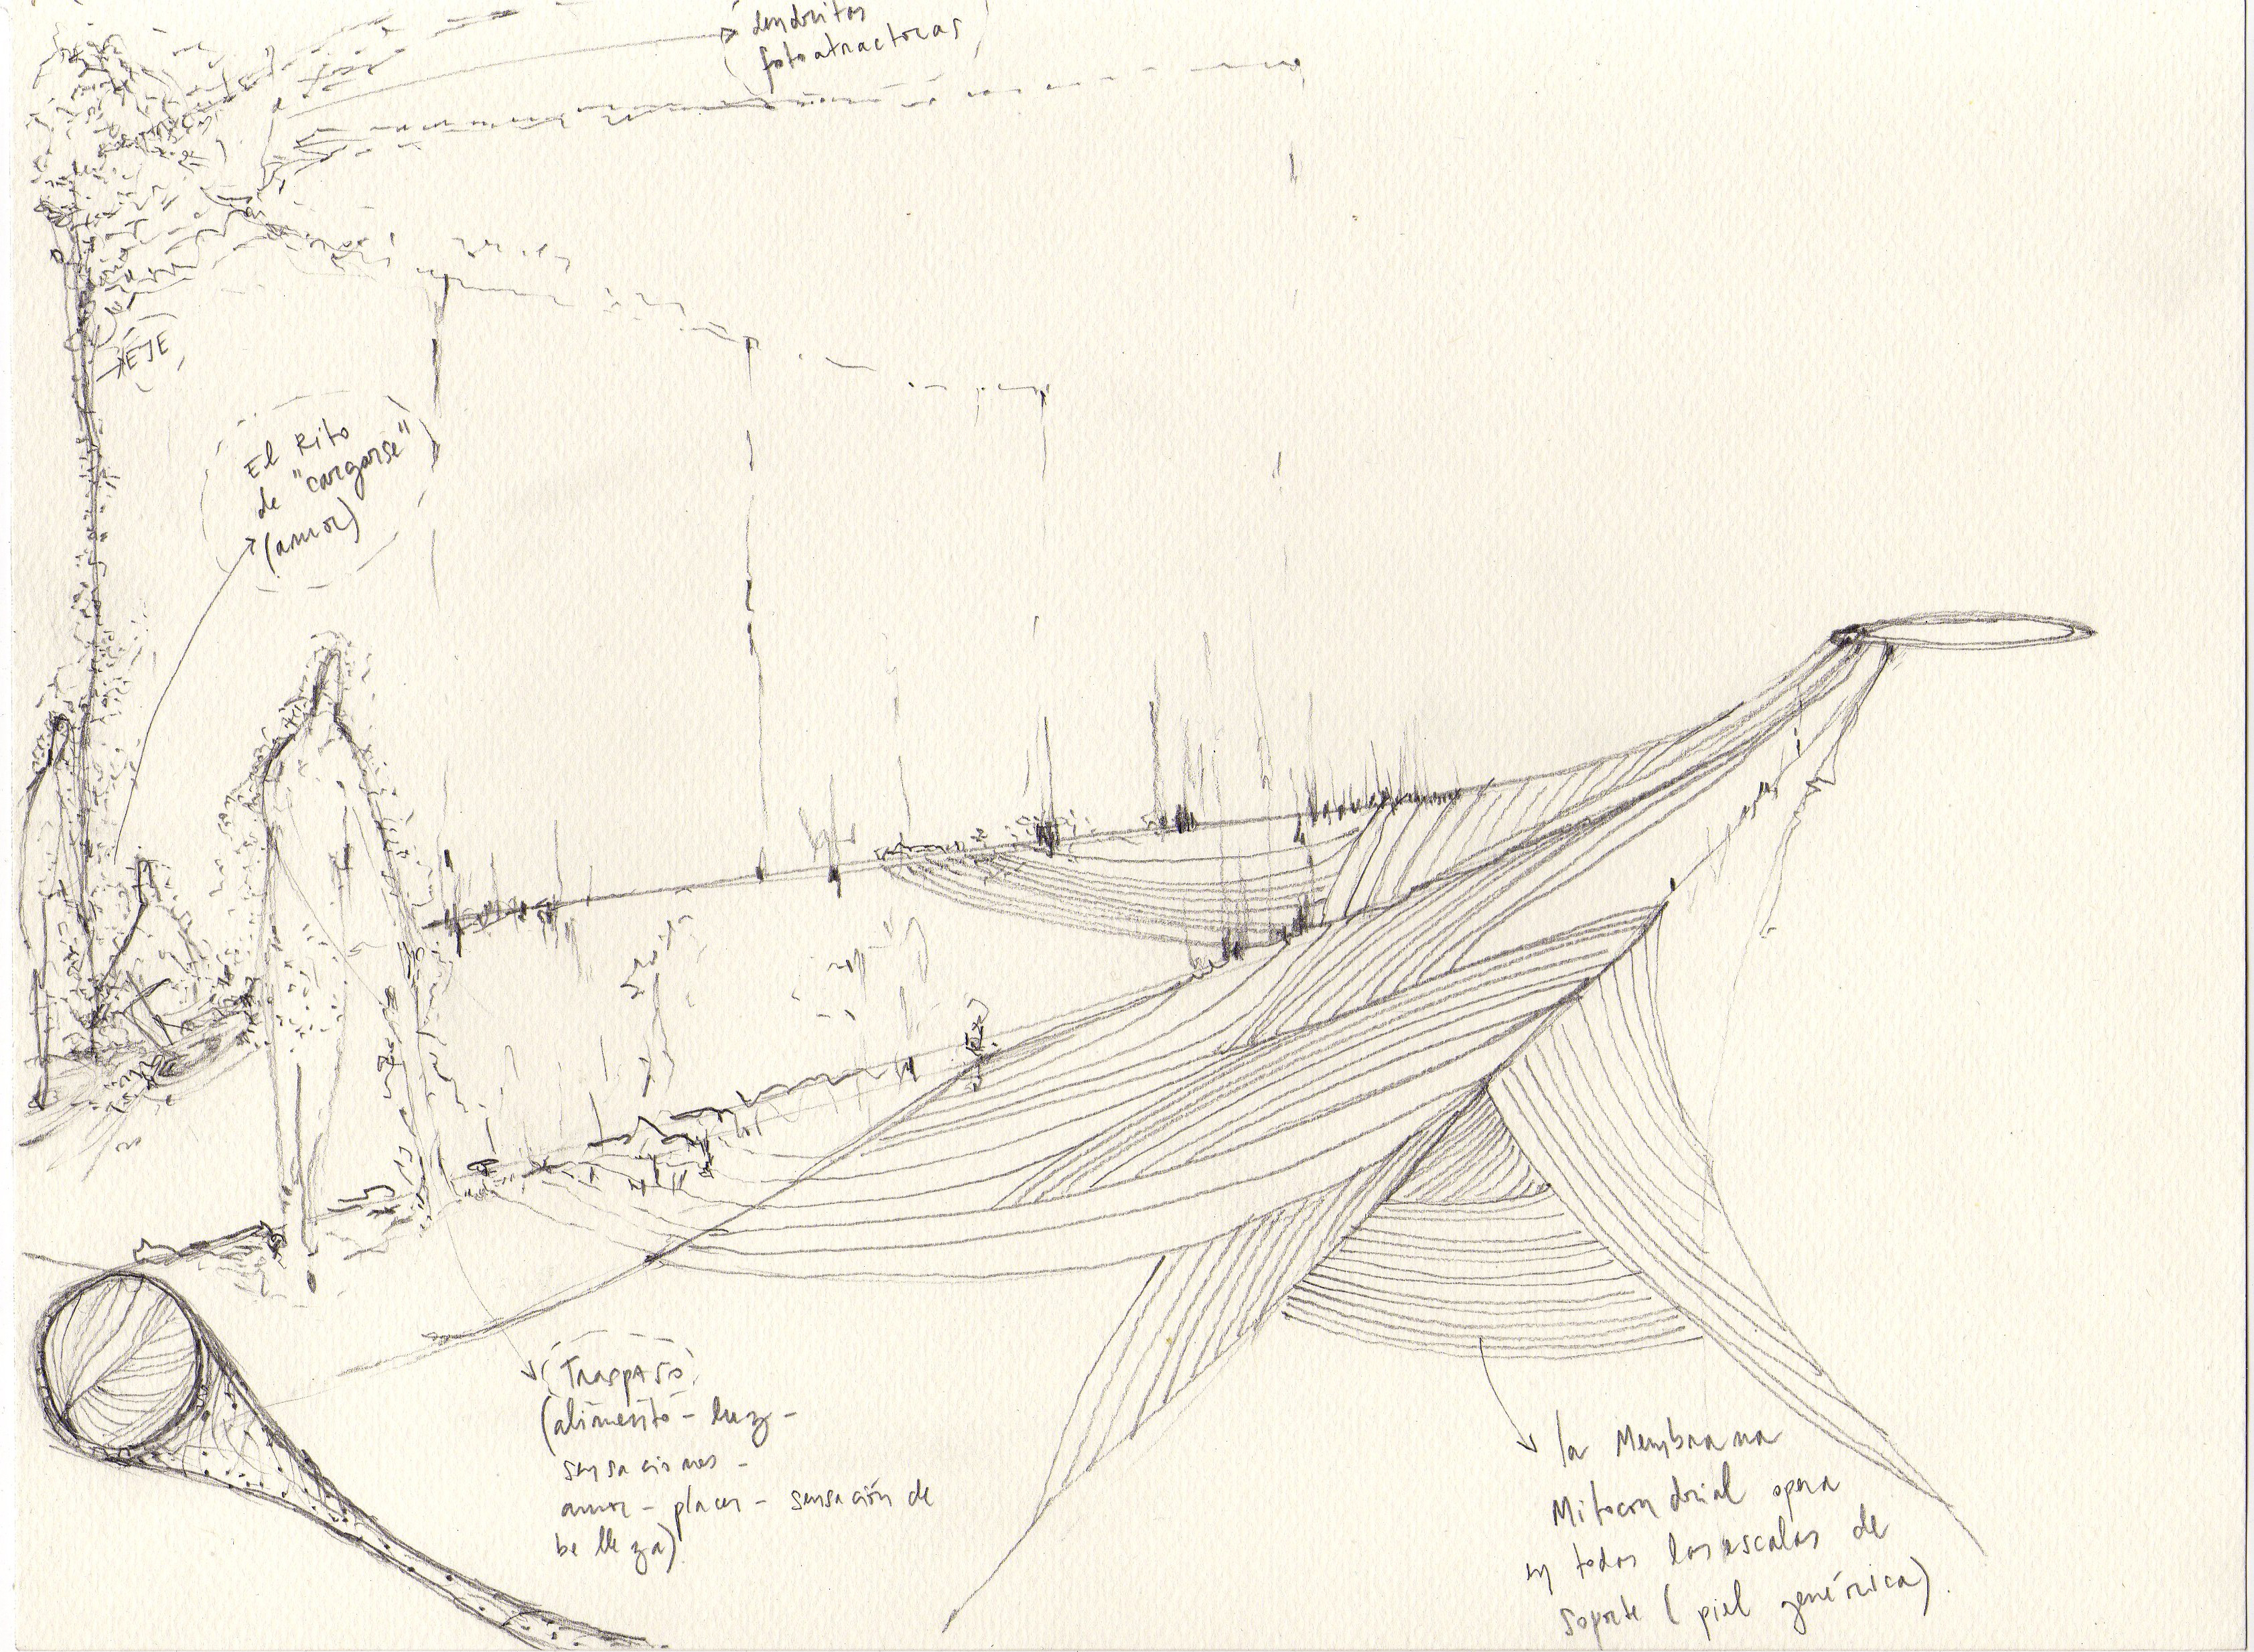 dendritas
fotoatractoras
EJE
El Rito
de "cargarse"
(amor)
Traspaso
(alimento - luz -
sensaciones -
amor - placer - sensación de
belleza)
la Membrana
Mitocondrial opera
en todas las escalas de
soporte (piel genérica).